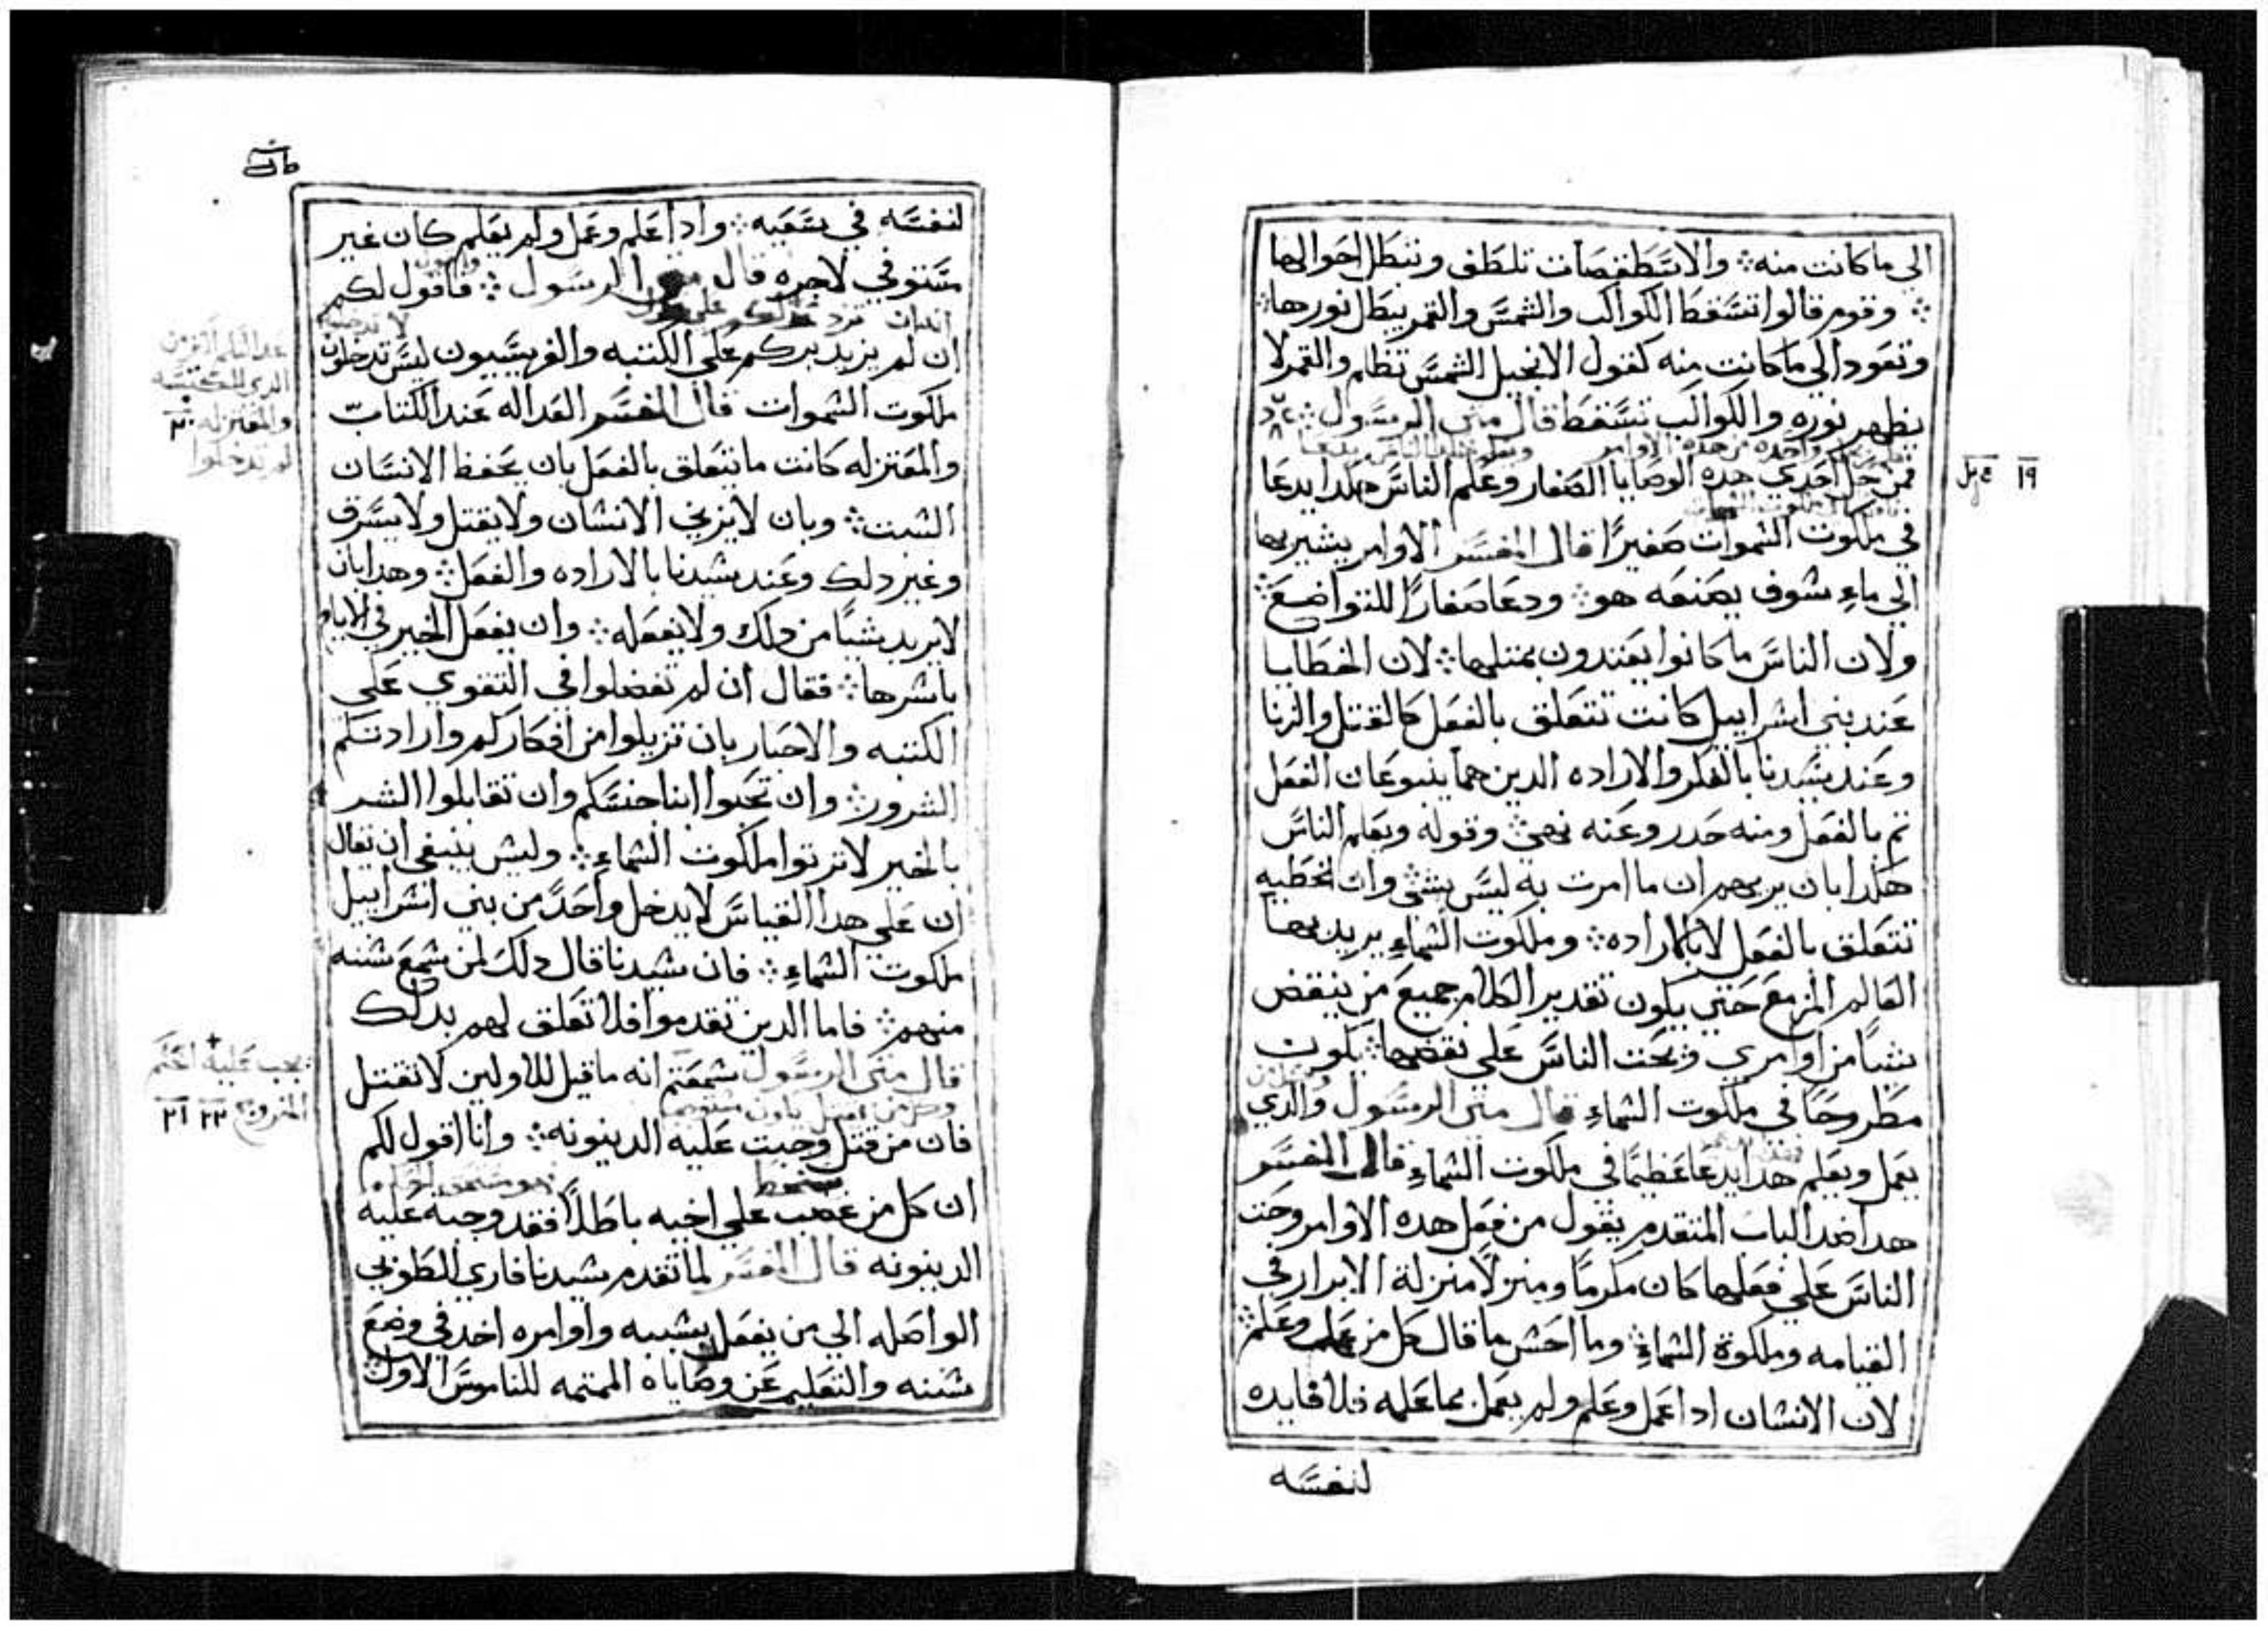 الي ما كانت منه ؞ والاسطقصات تلطف وتبطل احوالها
؞ وقوم قالوا تسقط الكواكب والشمس والقمر يبطل نورها ؞
وتعود الي ما كانت منه كقول الانجيل الشمس تظلم والقمر لا
يظهر نوره والكواكب تسقط قال متي الرسول ؞
فمن حل احدي هده الوصايا الصغار وعلم الناس هكدا يدعا
١٩
في ملكوت السموات صغيرًا قال المفسر الاوامر يشير بها
الي ماء سوف يصنعه هو ؞ ودعا صغارًا للتواضع ؞
ولان الناس ما كانوا يعتدون بمتلها ؞ لان الخطايا
عند بني اسراييل كانت تتعلق بالفعل كالقتل والزنا
وعند سيدنا بالفكر والاراده الدين هما ينبوعان الفعل
تم بالفعل ومنه حدر وعنه نهي ؞ وقوله ويعلم الناس
هكدا بان يريهم ان ما امرت به ليس بشي وان الخطيه
تتعلق بالفعل لا بالاراده ؞ وملكوت السماء يريد بها
العالم المزمع حتي يكون تقدير الكلام جميع من ينقض
شيًا من اوامري ويحت الناس علي نقضها ؞ يكون
مطروحًا في ملكوت السماء قال متي الرسول والدي
يعمل ويعلم هدا يدعا عظيمًا في ملكوت السماء قال المفسر
هدا ضد الباب المتقدم يقول من فعل هده الاوامر وحت
الناس علي فعلها كان مكرمًا ومنزلًا منزلة الابرار في
القيامه وملكوة السماء ؞ وما احسن ما قال كل من عمل وعلم ؞
لان الانسان ادا عمل وعلم ولم يعمل بما علمه فلا فايده
لنفسه
لنفسه في سعيه ؞ وادا علم وعمل ولم يعلم كان غير
مستوفي لاجره قال متي الرسول ؞ فاقول لكم
ان لم يزيد بركم علي الكتبه والفريسيون ليس تدخلون
ملكوت السموات قال المفسر العداله عند الكتاب
والمعتزله كانت ما يتعلق بالفعل بان يحفظ الانسان
السبت ؞ وبان لا يزني الانسان ولا يقتل ولا يسرق
وغير دلك وعند سيدنا بالاراده والفعل ؞ وهدا بان
لا يريد شيًا من دلك ولا يفعله ؞ وان يفعل الخير في الايام
باسرها ؞ فقال ان لم تفضلوا في التقوي علي
الكتبه والاحبار بان تزيلوا من افكاركم وارادتكم
الشرور ؞ وان تحبوا ابنا جنسكم وان تقابلوا الشر
بالخير لا ترتوا ملكوت السماء ؞ وليس ينبغي ان يقال
ان علي هدا القياس لا يدخل واحدً من بني اسراييل
ملكوت السماء ؞ فان سيدنا قال دلك لمن سمع سننه
منهم ؞ فاما الدين تقدموا فلا تعلق لهم بدلك
قال متي الرسول سمعتم انه ما قيل للاولين لا تقتل
الخروج ٢٣ ٢١
فان من قتل وجبت عليه الدينونه ؞ وانا اقول لكم
ان كل من غضب علي اخيه باطلًا فقد وجبة عليه
الدينونه قال المفسر لما تقدم سيدنا فاري الطوبي
الواصله الي من يفعل بسببه واوامره اخد في وضع
سننه والتعليم عن وصاياه المتممه للناموس الاول